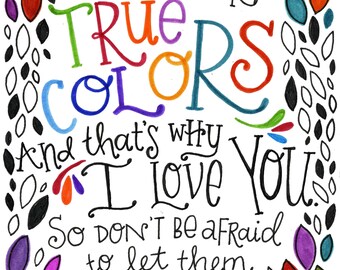 TRUE
COLORS
And that's why
I LOVE YOU.
SO DON'T BE AFRAID
to let them